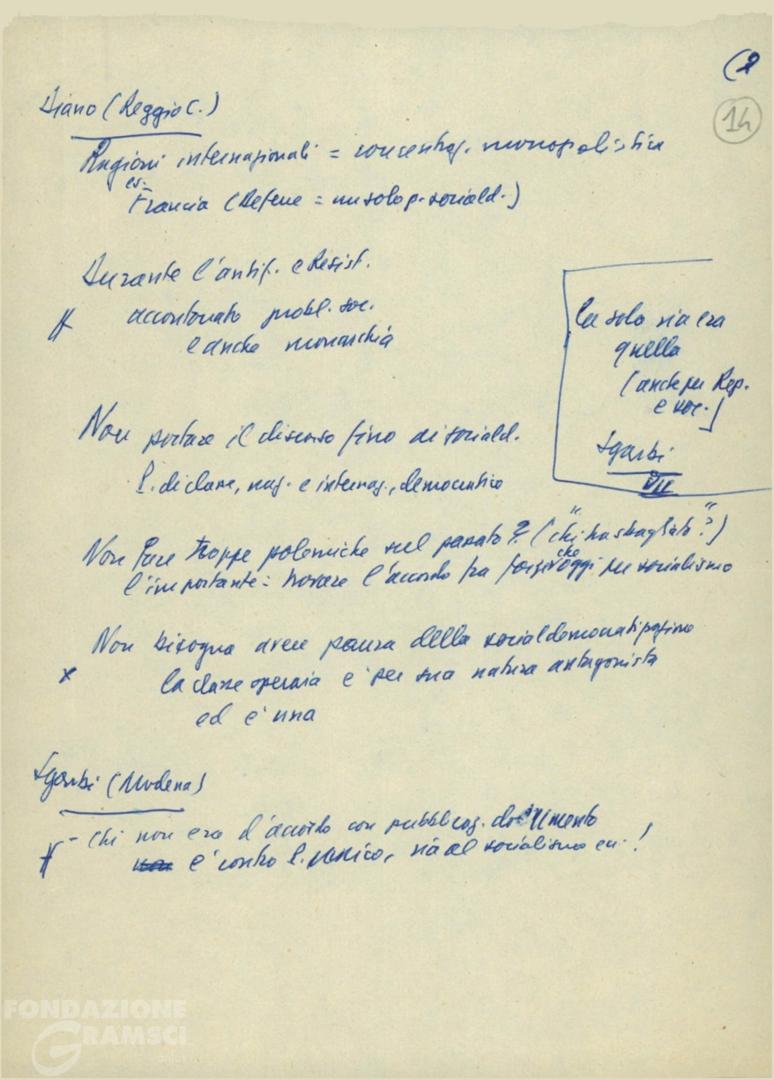 (2
14
Diano (Reggio C.)
Ragioni internazionali = concentraz. monopolistica
es.
Francia (Defferre = un solo p. sociald.)
Durante l'antif. e Resist.
accantonato probl. soc.
e anche monarchia
la sola via era
quella
(anche per Rep.
e soc.)
Sgarbi
VII
Non portare il discorso fino ai sociald.
P. di classe, naz. e internaz., democratico
Non fare troppe polemiche sul passato? ("chi ha sbagliato?")
l'importante = trovare l'accordo fra forze che oggi per socialismo
Non bisogna avere paura della socialdemocratizzazione
x la classe operaia è per sua natura antagonista
ed è una
Sgarbi (Modena)
- Chi non era d'accordo con pubblicaz. documento
è contro P. unico, via al socialismo ecc.!
FONDAZIONE
GRAMSCI